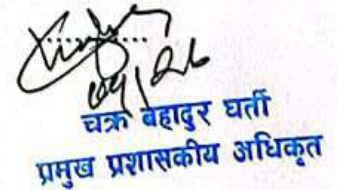 ०९/२६
चक्र बहादुर घर्ती
प्रमुख प्रशासकीय अधिकृत